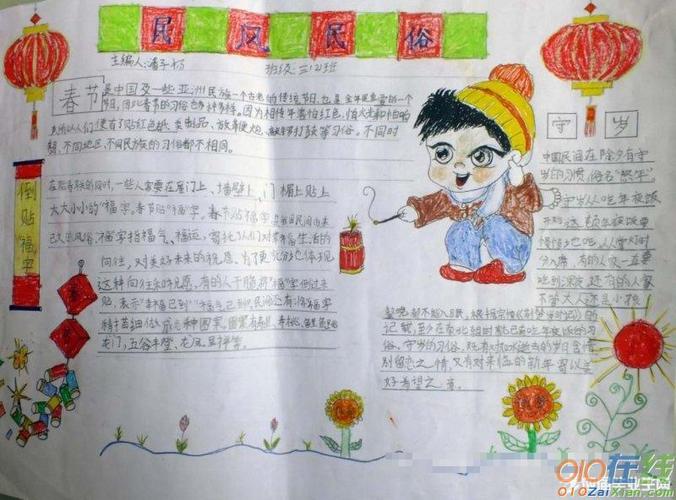 民风民俗
主编人:潘子杨
班级:三(2)班
春节是中国及一些亚洲民族一个古老的传统节日,也是全年最重要的一个
节日,因此春节的习俗也多种多样。因为相传年害怕红色、怕火光和怕响
所以人们便有了贴红色纸
放鞭炮、敲锣打鼓等习俗。不同时
期、不同地区、不同民族的习俗都不相同。
倒贴福字
在贴春联的同时,一些人家要在屋门上、墙壁上、门楣上贴上
大大小小的"福"字。春节贴"福"字,是我国民间由来
已久的风俗。"福"字指福气、福运,寄托了人们对幸福生活的
向往,对美好未来的祝愿。为了更充分地体现
这种向往和祝愿,有的人干脆将"福"字倒过来
贴,表示"幸福已到""福气已到"。民间还有将"福"字
精描细做成各种图案,图案有寿星、寿桃、鲤鱼跳
龙门、五谷丰登、龙凤呈祥等。
守岁
中国民间在除夕有守
岁的习惯,俗名"熬年"。
守岁从吃年夜饭
开始,这顿年夜饭要
慢慢地吧,从掌灯时
分入席,有的人家一直要
吃到深夜。
根据宗懔《荆楚岁时记》的
记载,至少在南北朝时就已有吃年夜饭的习
俗。守岁的习俗,既有对如水逝去的岁月含惜
别留恋之情,又有对来临的新年寄以美
好希望之意。
010在线
010ZaiXian.com